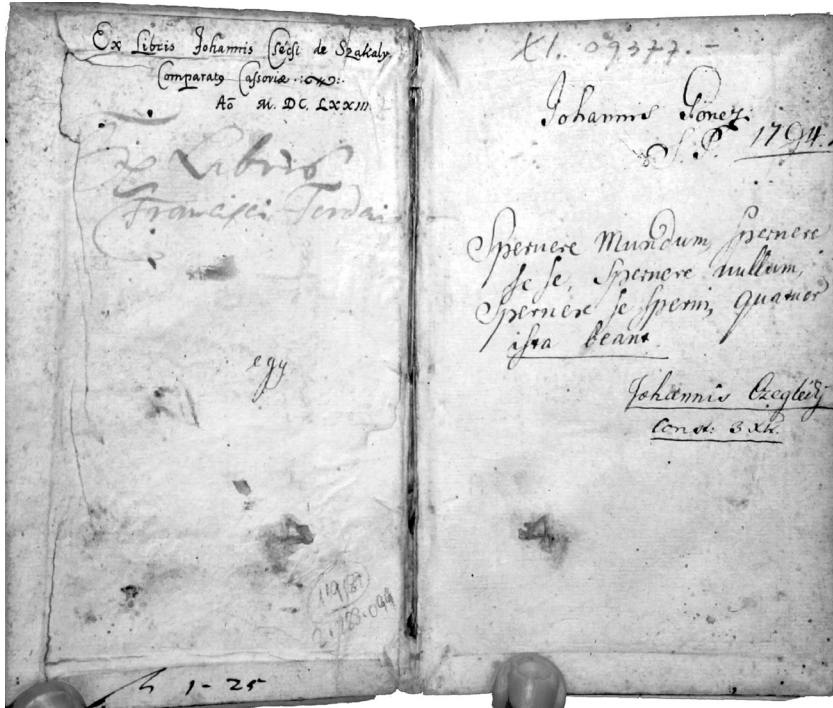 Ex Libris Johannis Csécsi de Szakaly.
Comparatq Cassoviæ
Aõ M. DC. LXXIII.
Ex Libris
Francisci Terdai
egy
1-25
XI. 09377.-
Johannis Göncz
S. P. 1794.
Spernere Mundum, spernere
se se, spernere nullum,
Spernere se sperni, quatuor
ista beant.
Johannis Czeglédj
Const: 3 xr.